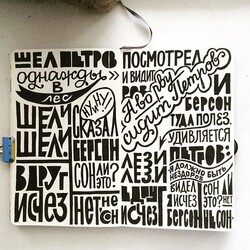 ШЕЛ ПЕТРОВ
однажды
В
лес
ШЕЛ И
ШЕЛ И
ВДРУГ
ИСЧЕЗ
«НУ И НУ»
СКАЗАЛ
БЕРСОН
СОН ЛИ
ЭТО?
НЕТ НЕ СОН
ПОСМОТРЕЛ
И ВИДИТ
РОВ
А во рву
сидит Петров
ЛЕЗ И
ЛЕЗ И
ВДРУГ
ИСЧЕЗ
И
БЕРСОН
ТУДА ПОЛЕЗ.
УДИВЛЯЕТСЯ
ПЕТРОВ:
Я ДОЛЖНО БЫТЬ
НЕЗДОРОВ
ВИДЕЛ Я
ИСЧЕЗ
БЕРСОН
СОН ЛИ
ЭТО?
НЕТ
НЕ СОН